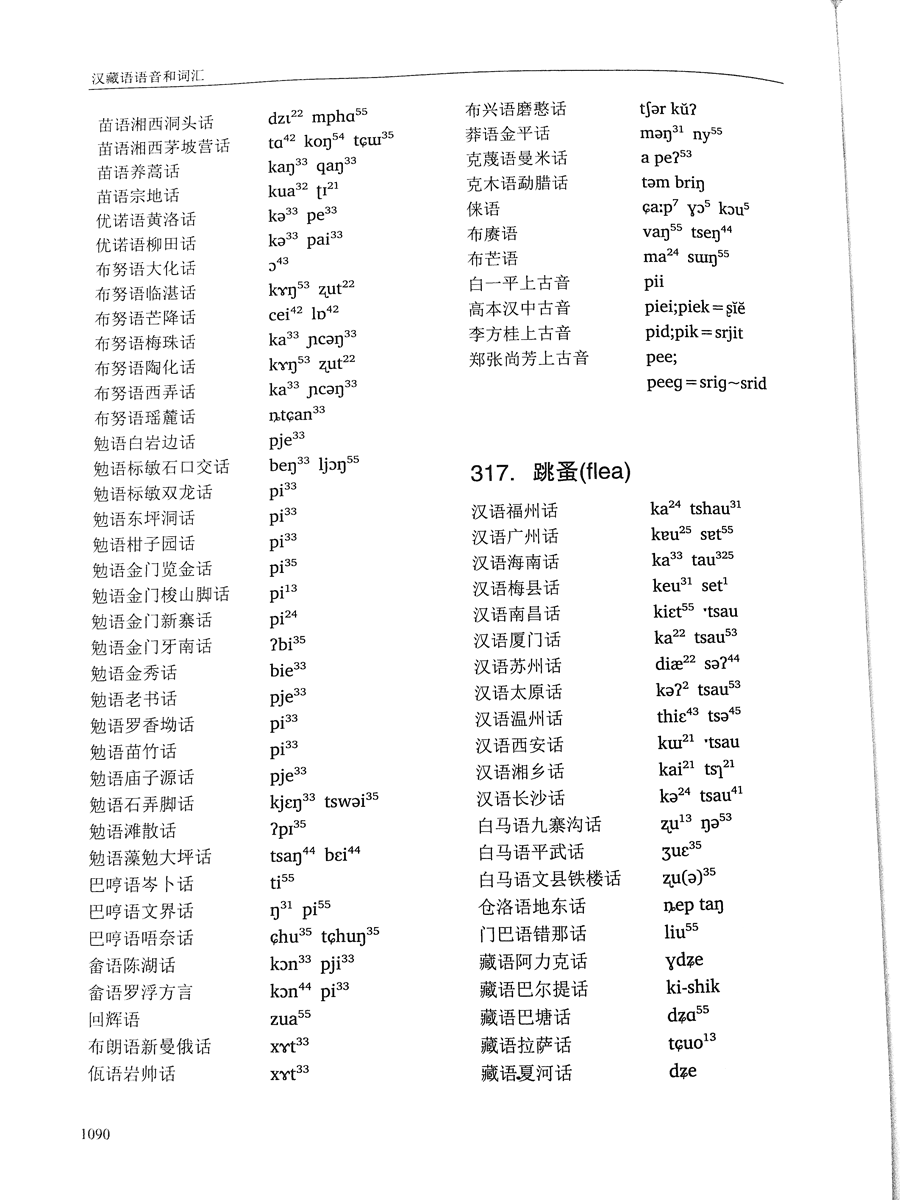 汉藏语语音和词汇
苗语湘西洞头话 dzɩ²² mphɑ⁵⁵
苗语湘西茅坡营话 tɑ⁴² koŋ⁵⁴ tɕɯ³⁵
苗语养蒿话 kaŋ³³ qaŋ³³
苗语宗地话 kua³² ʈɪ²¹
优诺语黄洛话 kə³³ pe³³
优诺语柳田话 kə³³ pai³³
布努语大化话 ɔ⁴³
布努语临湛话 kɤŋ⁵³ ʐut²²
布努语芒降话 cei⁴² lɒ⁴²
布努语梅珠话 ka³³ ɲcəŋ³³
布努语陶化话 kɤŋ⁵³ ʐut²²
布努语西弄话 ka³³ ɲcəŋ³³
布努语瑶麓话 ȵtɕan³³
勉语白岩边话 pje³³
勉语标敏石口交话 beŋ³³ ljɔŋ⁵⁵
勉语标敏双龙话 pi³³
勉语东坪洞话 pi³³
勉语柑子园话 pi³³
勉语金门览金话 pi³⁵
勉语金门梭山脚话 pi¹³
勉语金门新寨话 pi²⁴
勉语金门牙南话 ʔbi³⁵
勉语金秀话 bie³³
勉语老书话 pje³³
勉语罗香坳话 pi³³
勉语苗竹话 pi³³
勉语庙子源话 pje³³
勉语石弄脚话 kjɛŋ³³ tswəi³⁵
勉语滩散话 ʔpɪ³⁵
勉语藻勉大坪话 tsaŋ⁴⁴ bɛi⁴⁴
巴哼语岑卜话 ti⁵⁵
巴哼语文界话 ŋ³¹ pi⁵⁵
巴哼语唔奈话 ɕhu³⁵ tɕhuŋ³⁵
畲语陈湖话 kɔn³³ pji³³
畲语罗浮方言 kɔn⁴⁴ pi³³
回辉语 zua⁵⁵
布朗语新曼俄话 xɤt³³
佤语岩帅话 xɤt³³
布兴语磨憨话 tʃər kŭʔ
莽语金平话 məŋ³¹ ny⁵⁵
克蔑语曼米话 a peʔ⁵³
克木语勐腊话 təm briŋ
俫语 ɕa:p⁷ ɣɔ⁵ kɔu⁵
布赓语 vaŋ⁵⁵ tseŋ⁴⁴
布芒语 ma²⁴ sɯŋ⁵⁵
白一平上古音 pii
高本汉中古音 piei;piek=ʂĭĕ
李方桂上古音 pid;pik=srjit
郑张尚芳上古音 pee;
peeɡ=sriɡ~srid
317. 跳蚤(flea)
汉语福州话 ka²⁴ tshau³¹
汉语广州话 kɐu²⁵ sɐt⁵⁵
汉语海南话 ka³³ tau³²⁵
汉语梅县话 keu³¹ set¹
汉语南昌话 kiɛt⁵⁵ ·tsau
汉语厦门话 ka²² tsau⁵³
汉语苏州话 diæ²² səʔ⁴⁴
汉语太原话 kəʔ² tsau⁵³
汉语温州话 thiɛ⁴³ tsə⁴⁵
汉语西安话 kɯ²¹ ·tsau
汉语湘乡话 kai²¹ tsʅ²¹
汉语长沙话 kə²⁴ tsau⁴¹
白马语九寨沟话 ʐu¹³ ŋə⁵³
白马语平武话 ʒuɛ³⁵
白马语文县铁楼话 ʐu(ə)³⁵
仓洛语地东话 ȵep taŋ
门巴语错那话 liu⁵⁵
藏语阿力克话 ɣdʑe
藏语巴尔提话 ki-shik
藏语巴塘话 dʑɑ⁵⁵
藏语拉萨话 tɕuo¹³
藏语夏河话 dʑe
1090